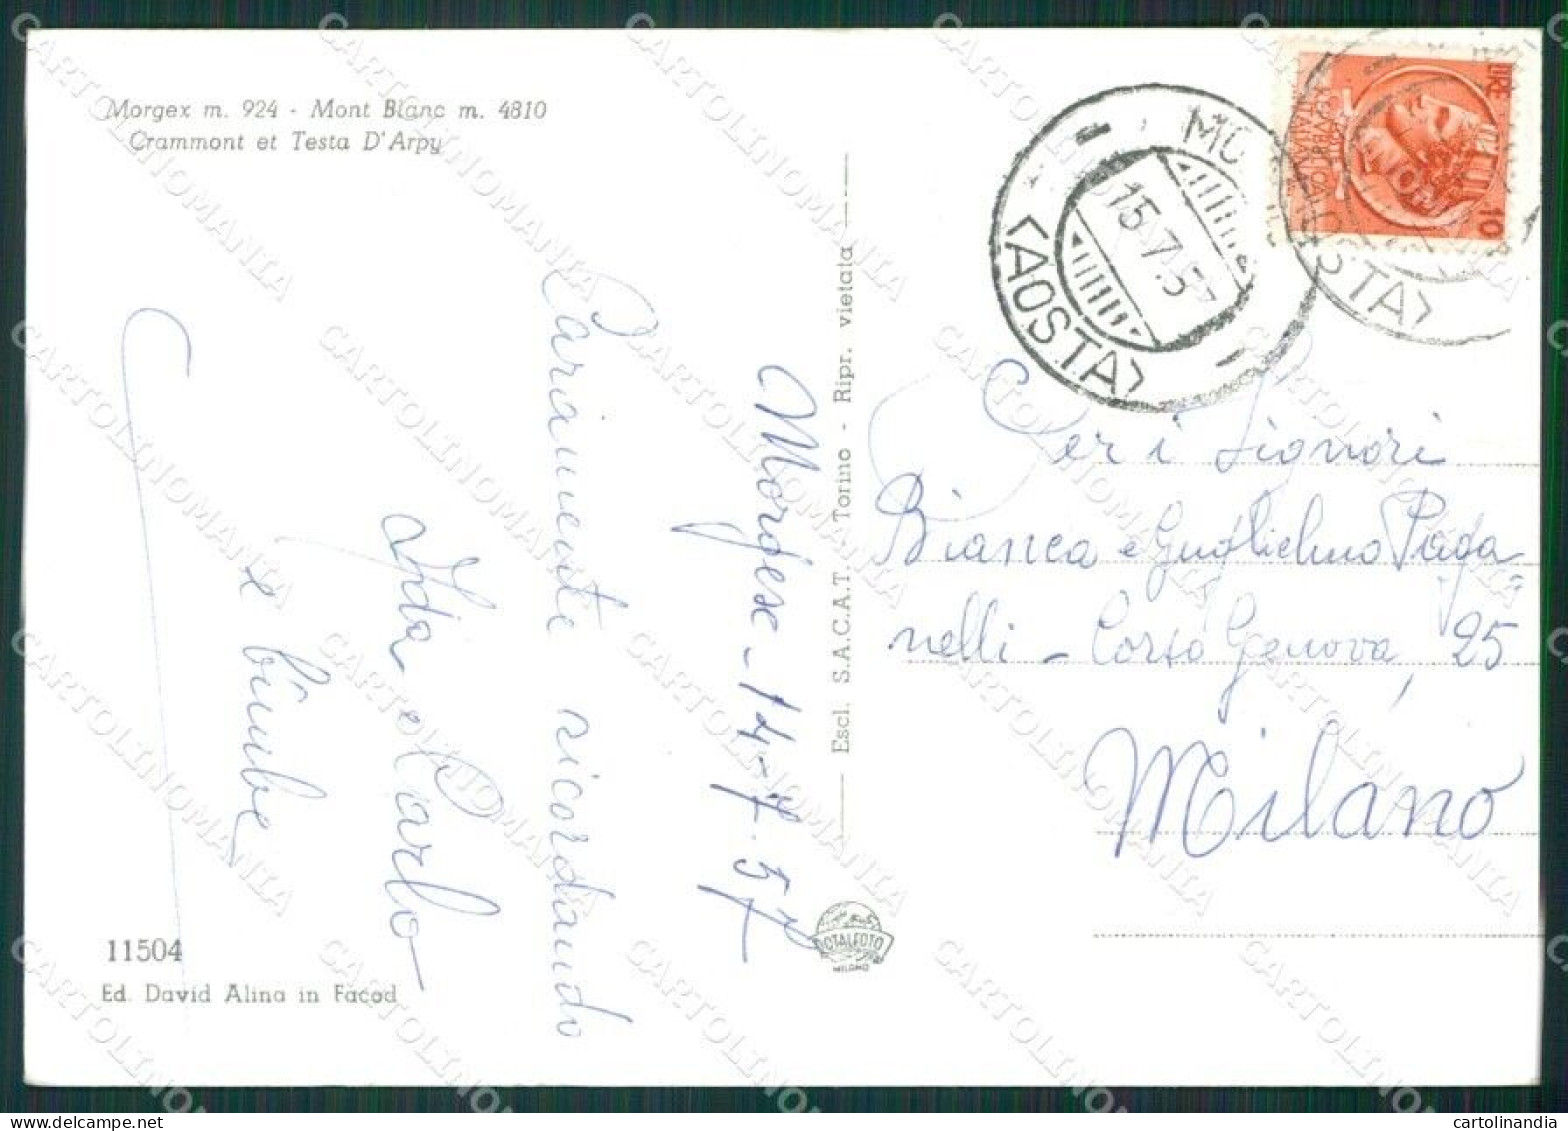 Morgex m. 924 - Mont Blanc m. 4810
Crammont et Testa D'Arpy
Morgex - 14-7-57
Caramente ricordando
Ida e Carlo
e bimbe
11504
Ed. David Alina in Facod
Escl. S.A.C.A.T. - Torino - Ripr. vietata
MILANO
(AOSTA)
15.7.57
LIRE
10
Per i Signori
Bianca e Guglielmo Paga
nelli - Corso Genova, 25
Milano
CARTOLINOMANIA
cartolinandia